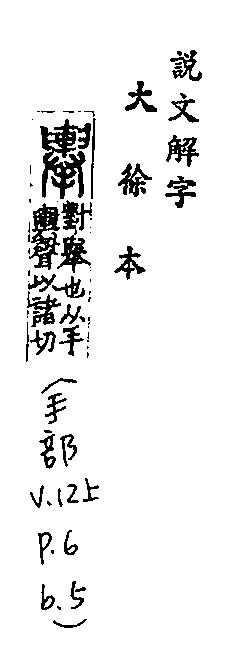 説文解字
大徐本
對舉也从手
輿聲以諸切
(手部 V.12上 P.6 b.5)